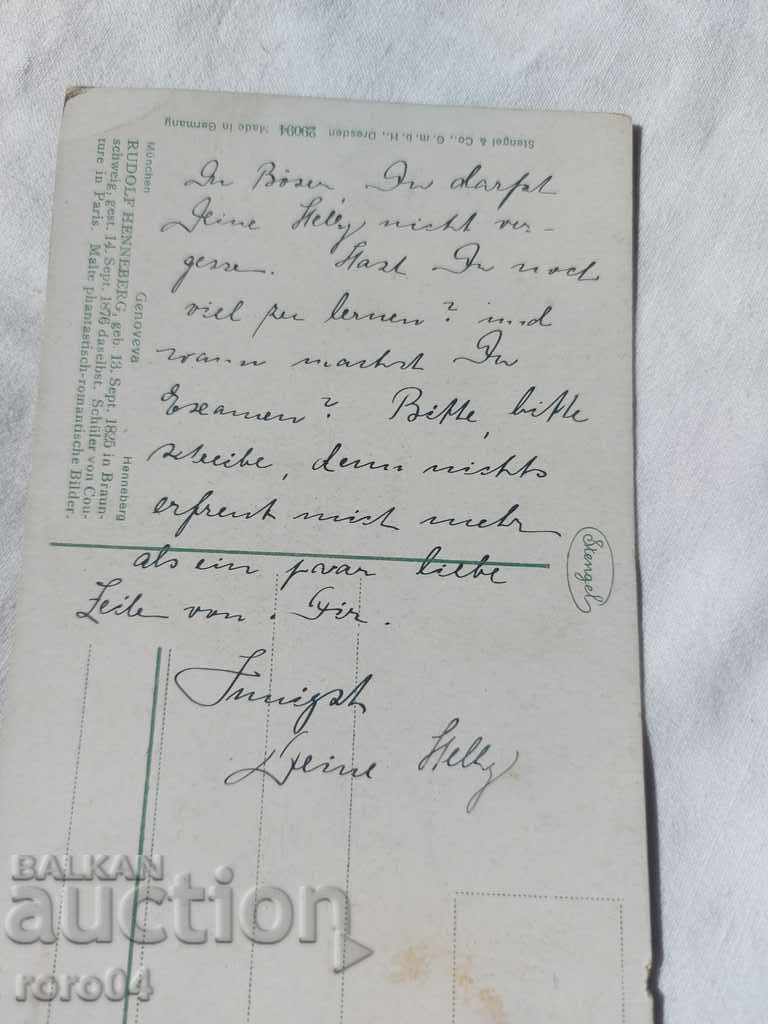 Stengel & Co., G. m. b. H., Dresden 29094 Made in Germany
München Genoveva Henneberg
RUDOLF HENNEBERG, geb. 13. Sept. 1825 in Braun-
schweig, gest. 14. Sept. 1876 daselbst. Schüler von Cou-
ture in Paris. Malte phantastisch-romantische Bilder.
Du Böser, Du darfst
Deine Helly nicht ver-
gessen. Hast Du noch
viel zu lernen? und
wann machst Du
Examen? Bitte, bitte
schreibe, denn nichts
erfreut mich mehr
als ein paar liebe
Zeilen von Dir.
Innigst
Deine Helly
Stengel
BALKAN
auction
roro04